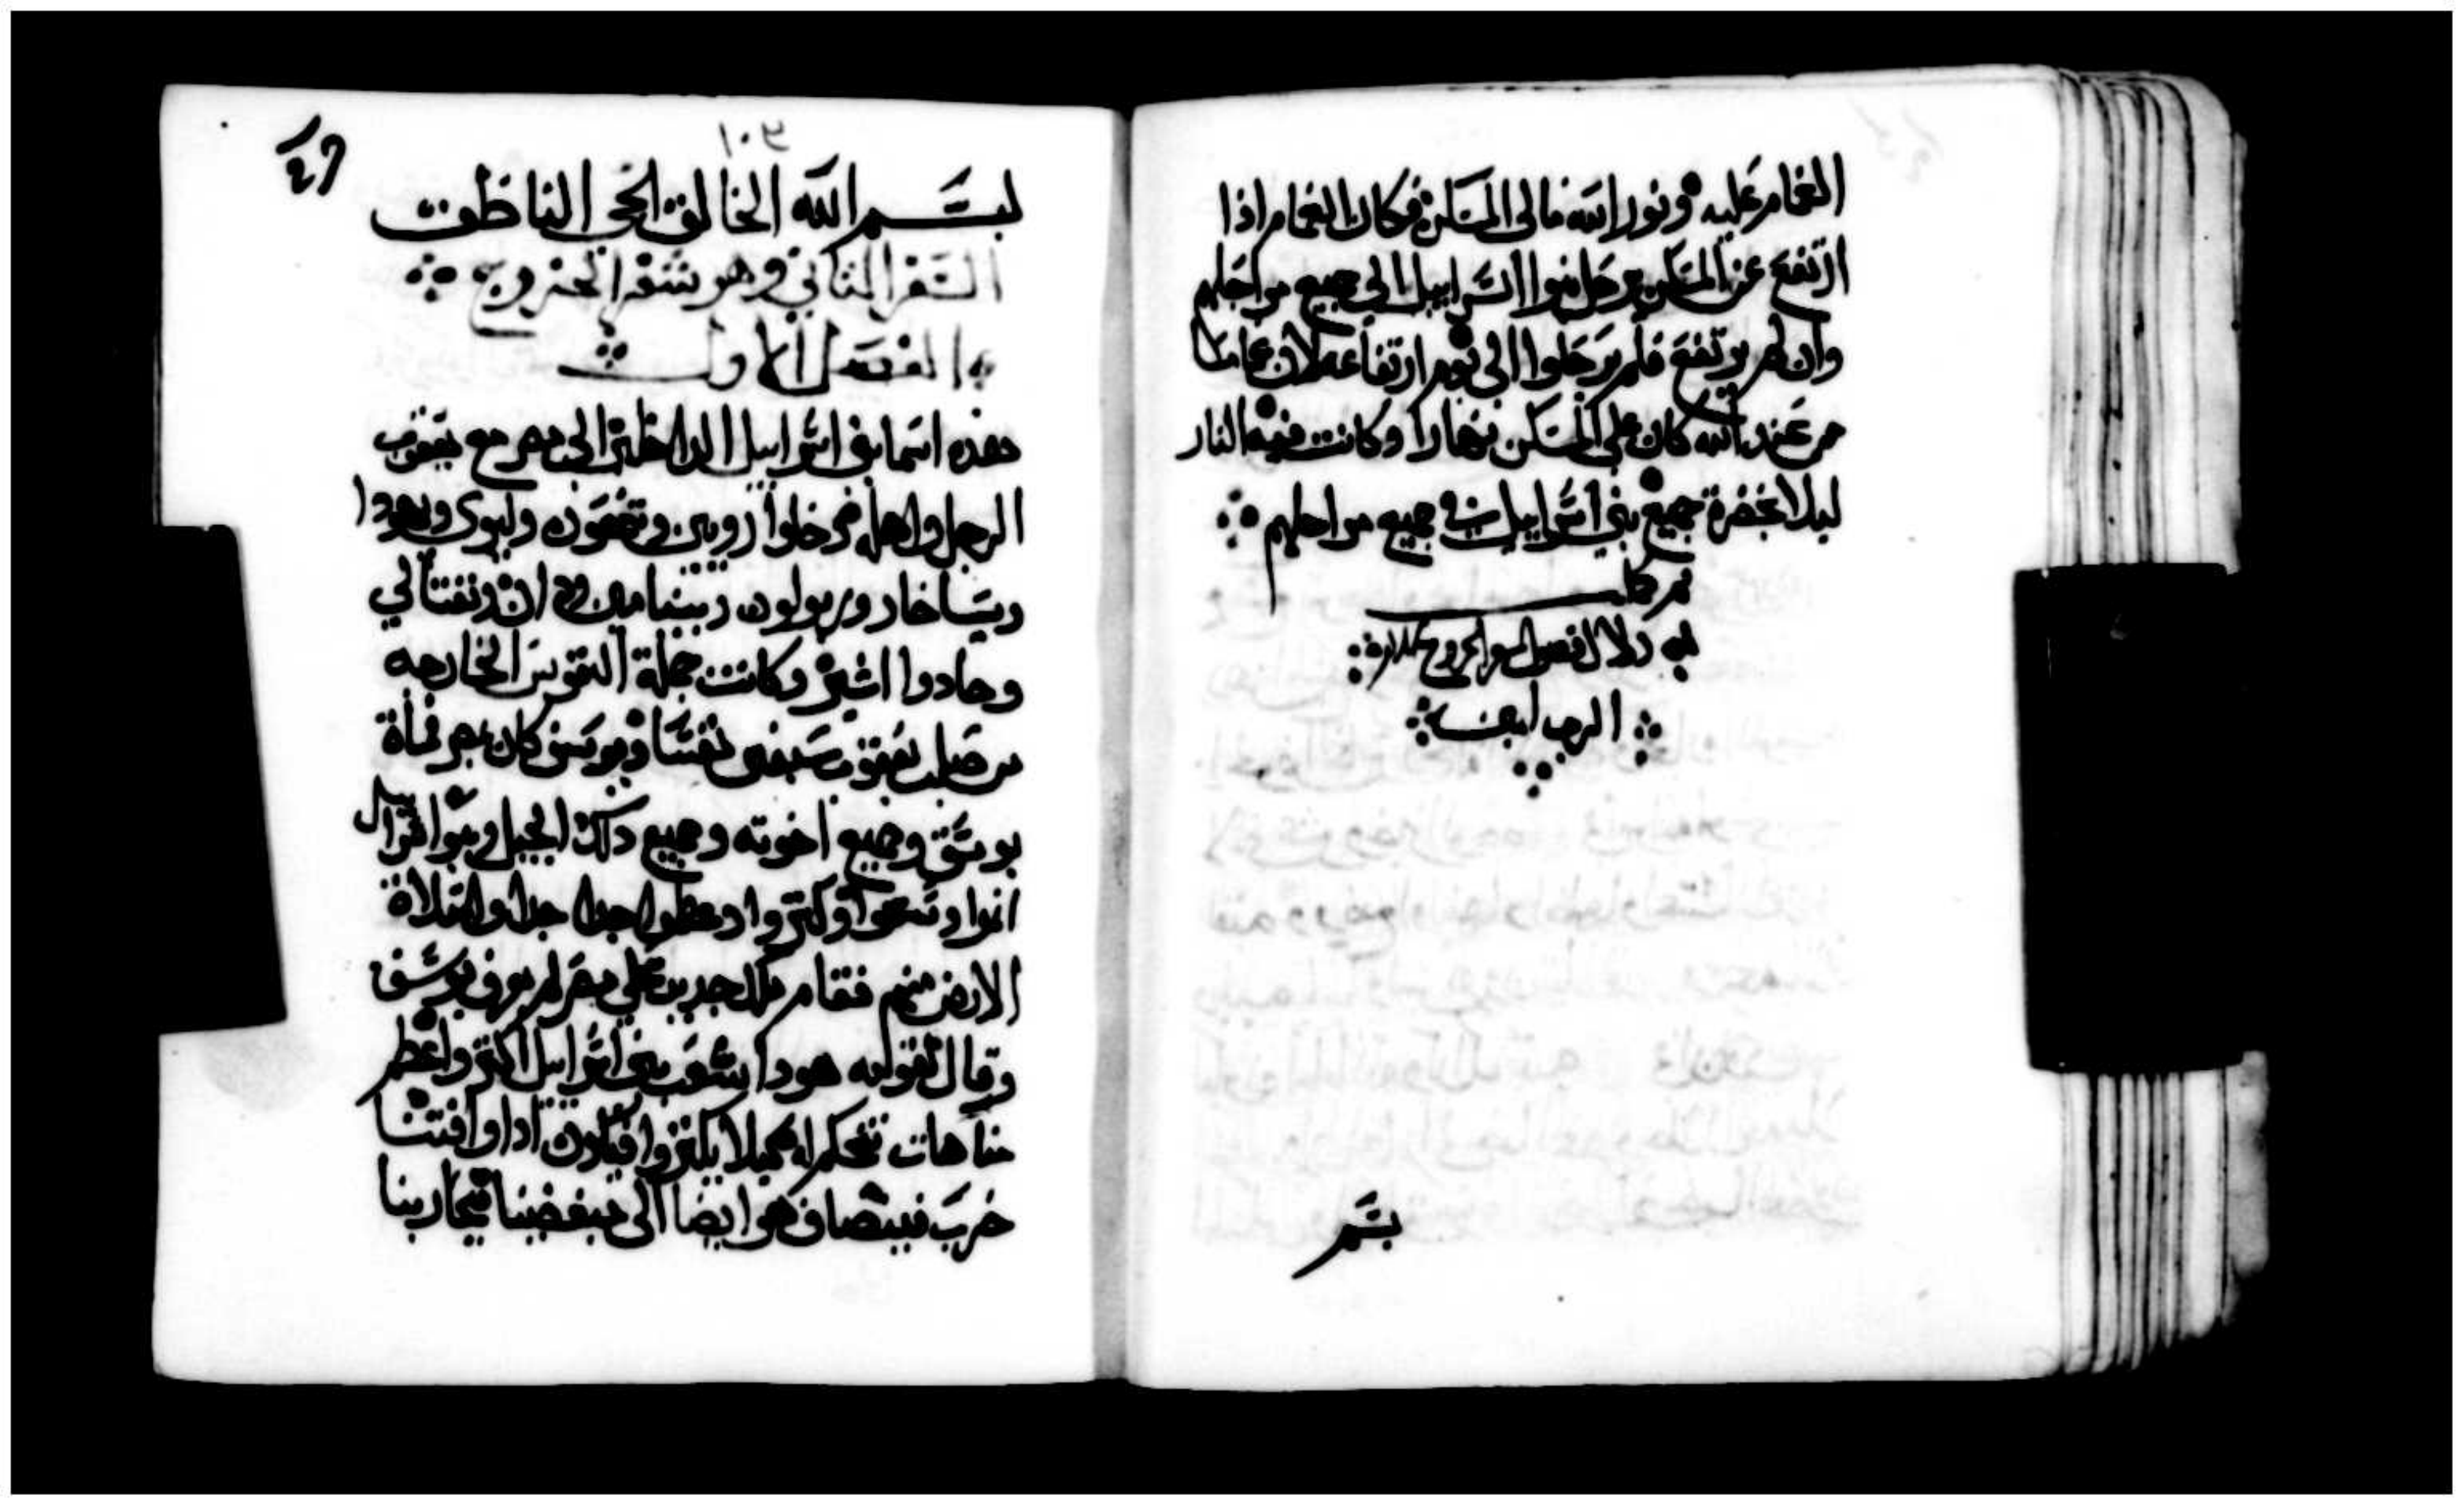 الغمام عليه ونور الله مالى المسكن فكان الغمام اذا
ارتفع عن المسكن يرحلوا بنوا اسراييل الي جميع مراحلهم
وان لم يرتفع فلم يرحلوا الى يوم ارتفاعه لان غامنا
من عند الله كان على المسكن نهارا وكانت فيه النار
ليلا بحضرة جميع بني اسراييل في جميع مراحلهم
تم وكمل
الرب
بسم
١٠٣
بسم الله الخالق الحي الناطق
السفر الثاني وهو سفر الخروج
الفصل الاول
هذه اسما بني اسراييل الداخلين الي مصر مع يعقوب
الرجل واهله دخلوا روبين وشمعون وليوي ويهودا
ويساخار وزبولون وبينيامين ودان ونفتالي
وجادوا اشير وكانت جملة النفوس الخارجه
من صلب يعقوب سبعين نفسا ويوسف كان بمصر فمات
يوسف وجميع اخوته وجميع ذلك الجيل وبنوا اسراييل
انموا وسعوا وكتروا وعظموا جدا جدا وامتلات
الارض منهم فقام ملك جديد علي مصر لم يعرف يوسف
وقال لقومه هودا شعب بني اسراييل اكتر واعظم
منا هات نتحكم له كيلا يكتروا فيكون اذا وافتنا
حرب فينضاف هو ايضا الى مبغضينا يحاربنا